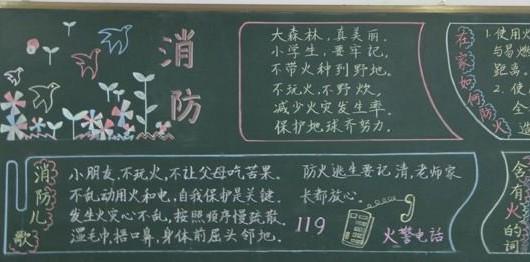 消防
大森林，真美丽。
小学生，要牢记，
不带火种到野地。
不玩火，不野炊，
减少火灾发生率。
保护地球齐努力。
在家如何防火
1.使用火
与易燃
距离
2.使
全
逃
消防儿歌
小朋友，不玩火，不让父母吃苦果。
不乱动用火和电，自我保护是关键。
发生火灾心不乱，按照顺序慢疏散。
湿毛巾，捂口鼻，身体前屈头邻地。
防火逃生要记清，老师家
长都放心。
119
火警电话
含有火的词